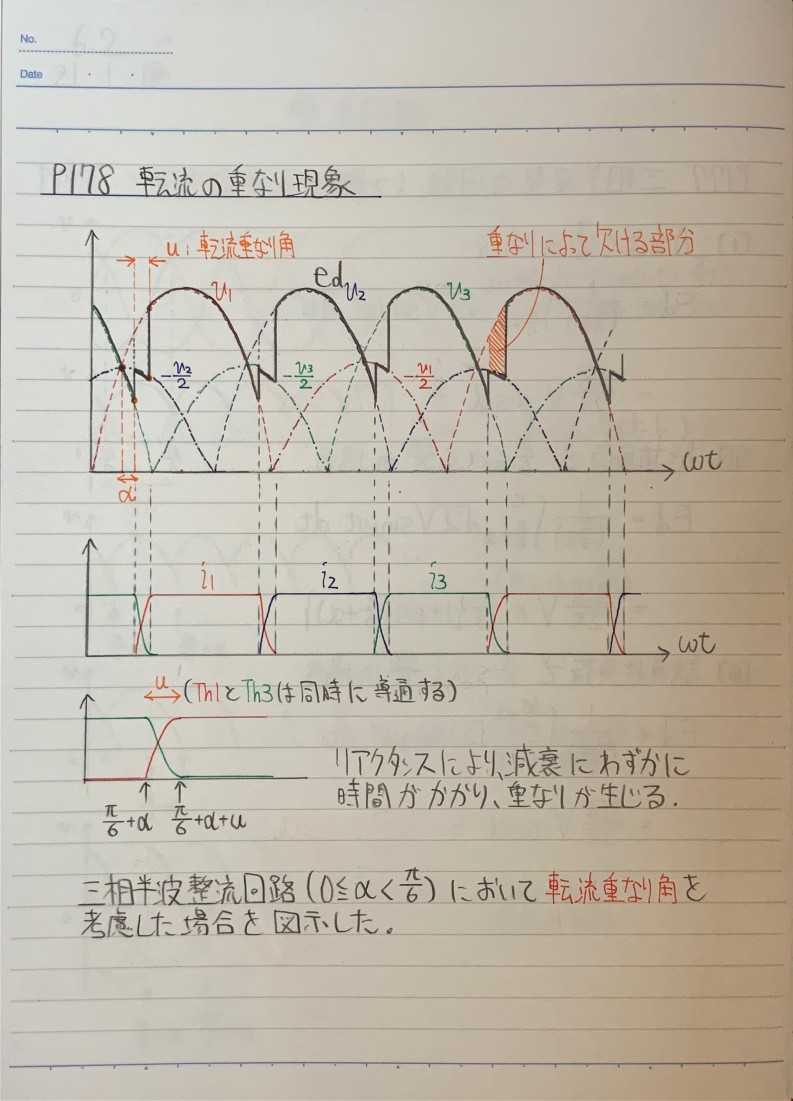 No.
Date
P178 転流の重なり現象
u：転流重なり角
重なりによって欠ける部分
v1
ed
v2
v3
-v2/2
-v3/2
-v1/2
ωt
α
i1
i2
i3
ωt
u (Th1とTh3は同時に導通する)
π/6+α
π/6+α+u
リアクタンスにより、減衰にわずかに
時間がかかり、重なりが生じる.
三相半波整流回路(0≦α<π/6)において転流重なり角を
考慮した場合を図示した。